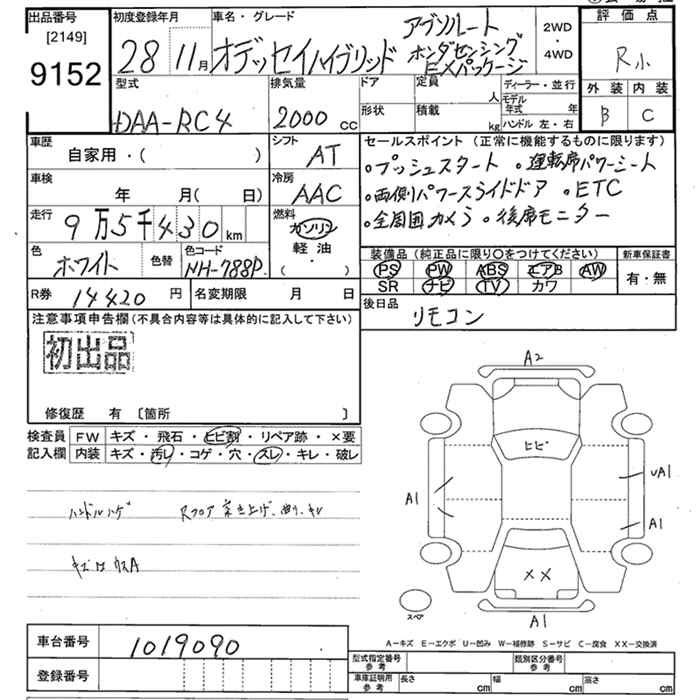 出品番号
[2149]
9152
初度登録年月
28 11月
車名・グレード
オデッセイハイブリッド
アブソルート
ホンダセンシング
EXパッケージ
2WD
・
4WD
評価点
R小
外装 内装
B C
型式
DAA-RC4
排気量
2000 cc
ドア
形状
定員
人
積載
kg
ディーラー・並行
モデル年式 年
ハンドル 左・右
車歴
自家用・( )
シフト
AT
車検
年 月( 日)
冷房
AAC
走行
9万5千430km
燃料
ガソリン
軽油
・
( )
色
ホワイト
色替
色コード
NH-788P
R券 14420 円
名変期限 月 日
セールスポイント (正常に機能するものに限ります)
・プッシュスタート ・運転席パワーシート
・両側パワースライドドア ・ETC
・全周囲カメラ ・後席モニター
装備品 (純正品に限り○をつけてください)
新車保証書
PS PW ABS エアB AW
SR ナビ TV カワ
有・無
後日品
リモコン
注意事項申告欄 (不具合内容等は具体的に記入して下さい)
初出品
修復歴 有 〔箇所 〕
検査員
記入欄
FW キズ・飛石・ヒビ割・リペア跡・×要
内装 キズ・汚レ・コゲ・穴・スレ・キレ・破レ
ハンドルハゲ Rフロア 突き上げ、曲り、キレ
キズ
A2
ヒビ
A1
UA1
A1
XX
スペア
A1
A=キズ E=エクボ U=凹み W=補修跡 S=サビ C=腐食 XX=交換済
車台番号
1019090
登録番号
型式指定番号 参考
類別区分番号 参考
車庫証明用 参考
長さ cm 幅 cm 高さ cm